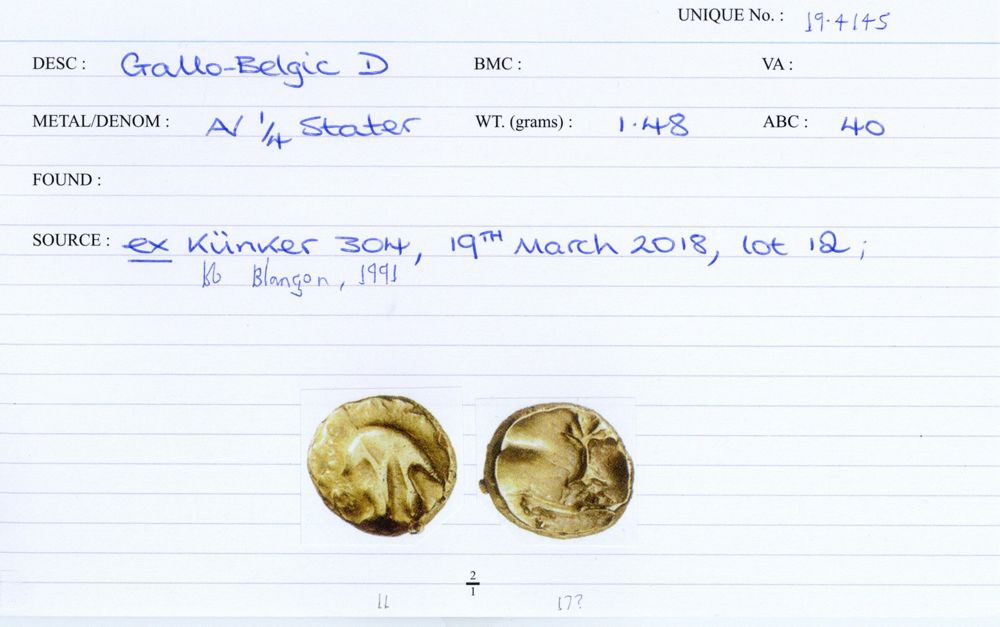 UNIQUE No. : 19.4145
DESC : Gallo-Belgic D BMC : VA :
METAL/DENOM : A/ 1/4 Stater WT. (grams) : 1.48 ABC : 40
FOUND :
SOURCE : ex Künker 304, 19TH March 2018, lot 12;
Blançon, 1991
2/1
11 17?